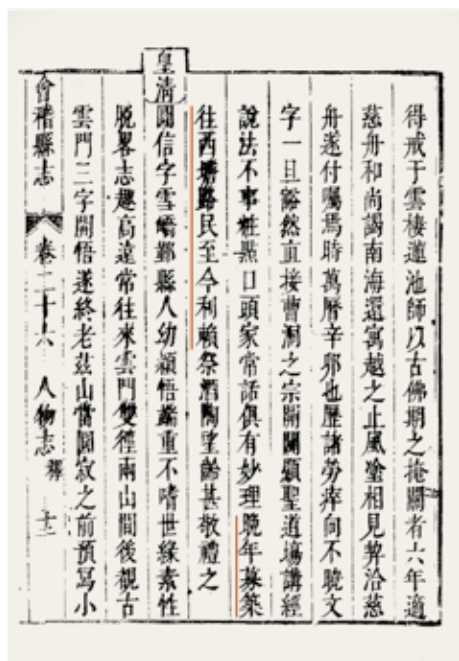 得戒于雲棲蓮池師以古佛期之掩關者六年適
慈舟和尚謁南海還寓越之止風塗相見契洽慈
舟遂付囑焉時萬曆辛卯也歷諸勞瘁向不曉文
字一旦豁然直接曹洞之宗開闢顯聖道塲講經
說法不事粧點口頭家常話俱有妙理晚年募築
往西塘路民至今利賴祭酒陶望齡甚敬禮之
皇清圓信字雪嶠鄞縣人幼穎悟端重不嗜世緣素性
脫畧志趣高遠常往來雲門雙徑兩山間後覩古
雲門三字開悟遂終老茲山當圓寂之前預寫小
會稽縣志 卷二十六 人物志 釋 十二